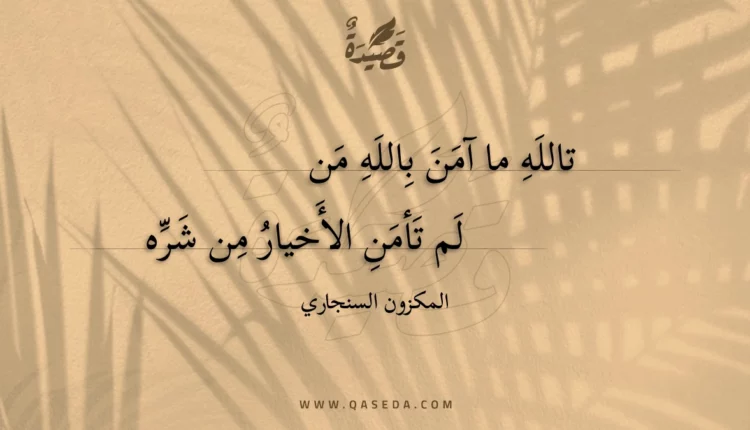 قَصِيْدَةٌ
تاللَهِ ما آمَنَ بِاللَهِ مَن
لَم تَأمَنِ الأَخيارُ مِن شَرِّه
المكزون السنجاري
WWW.QASEDA.COM